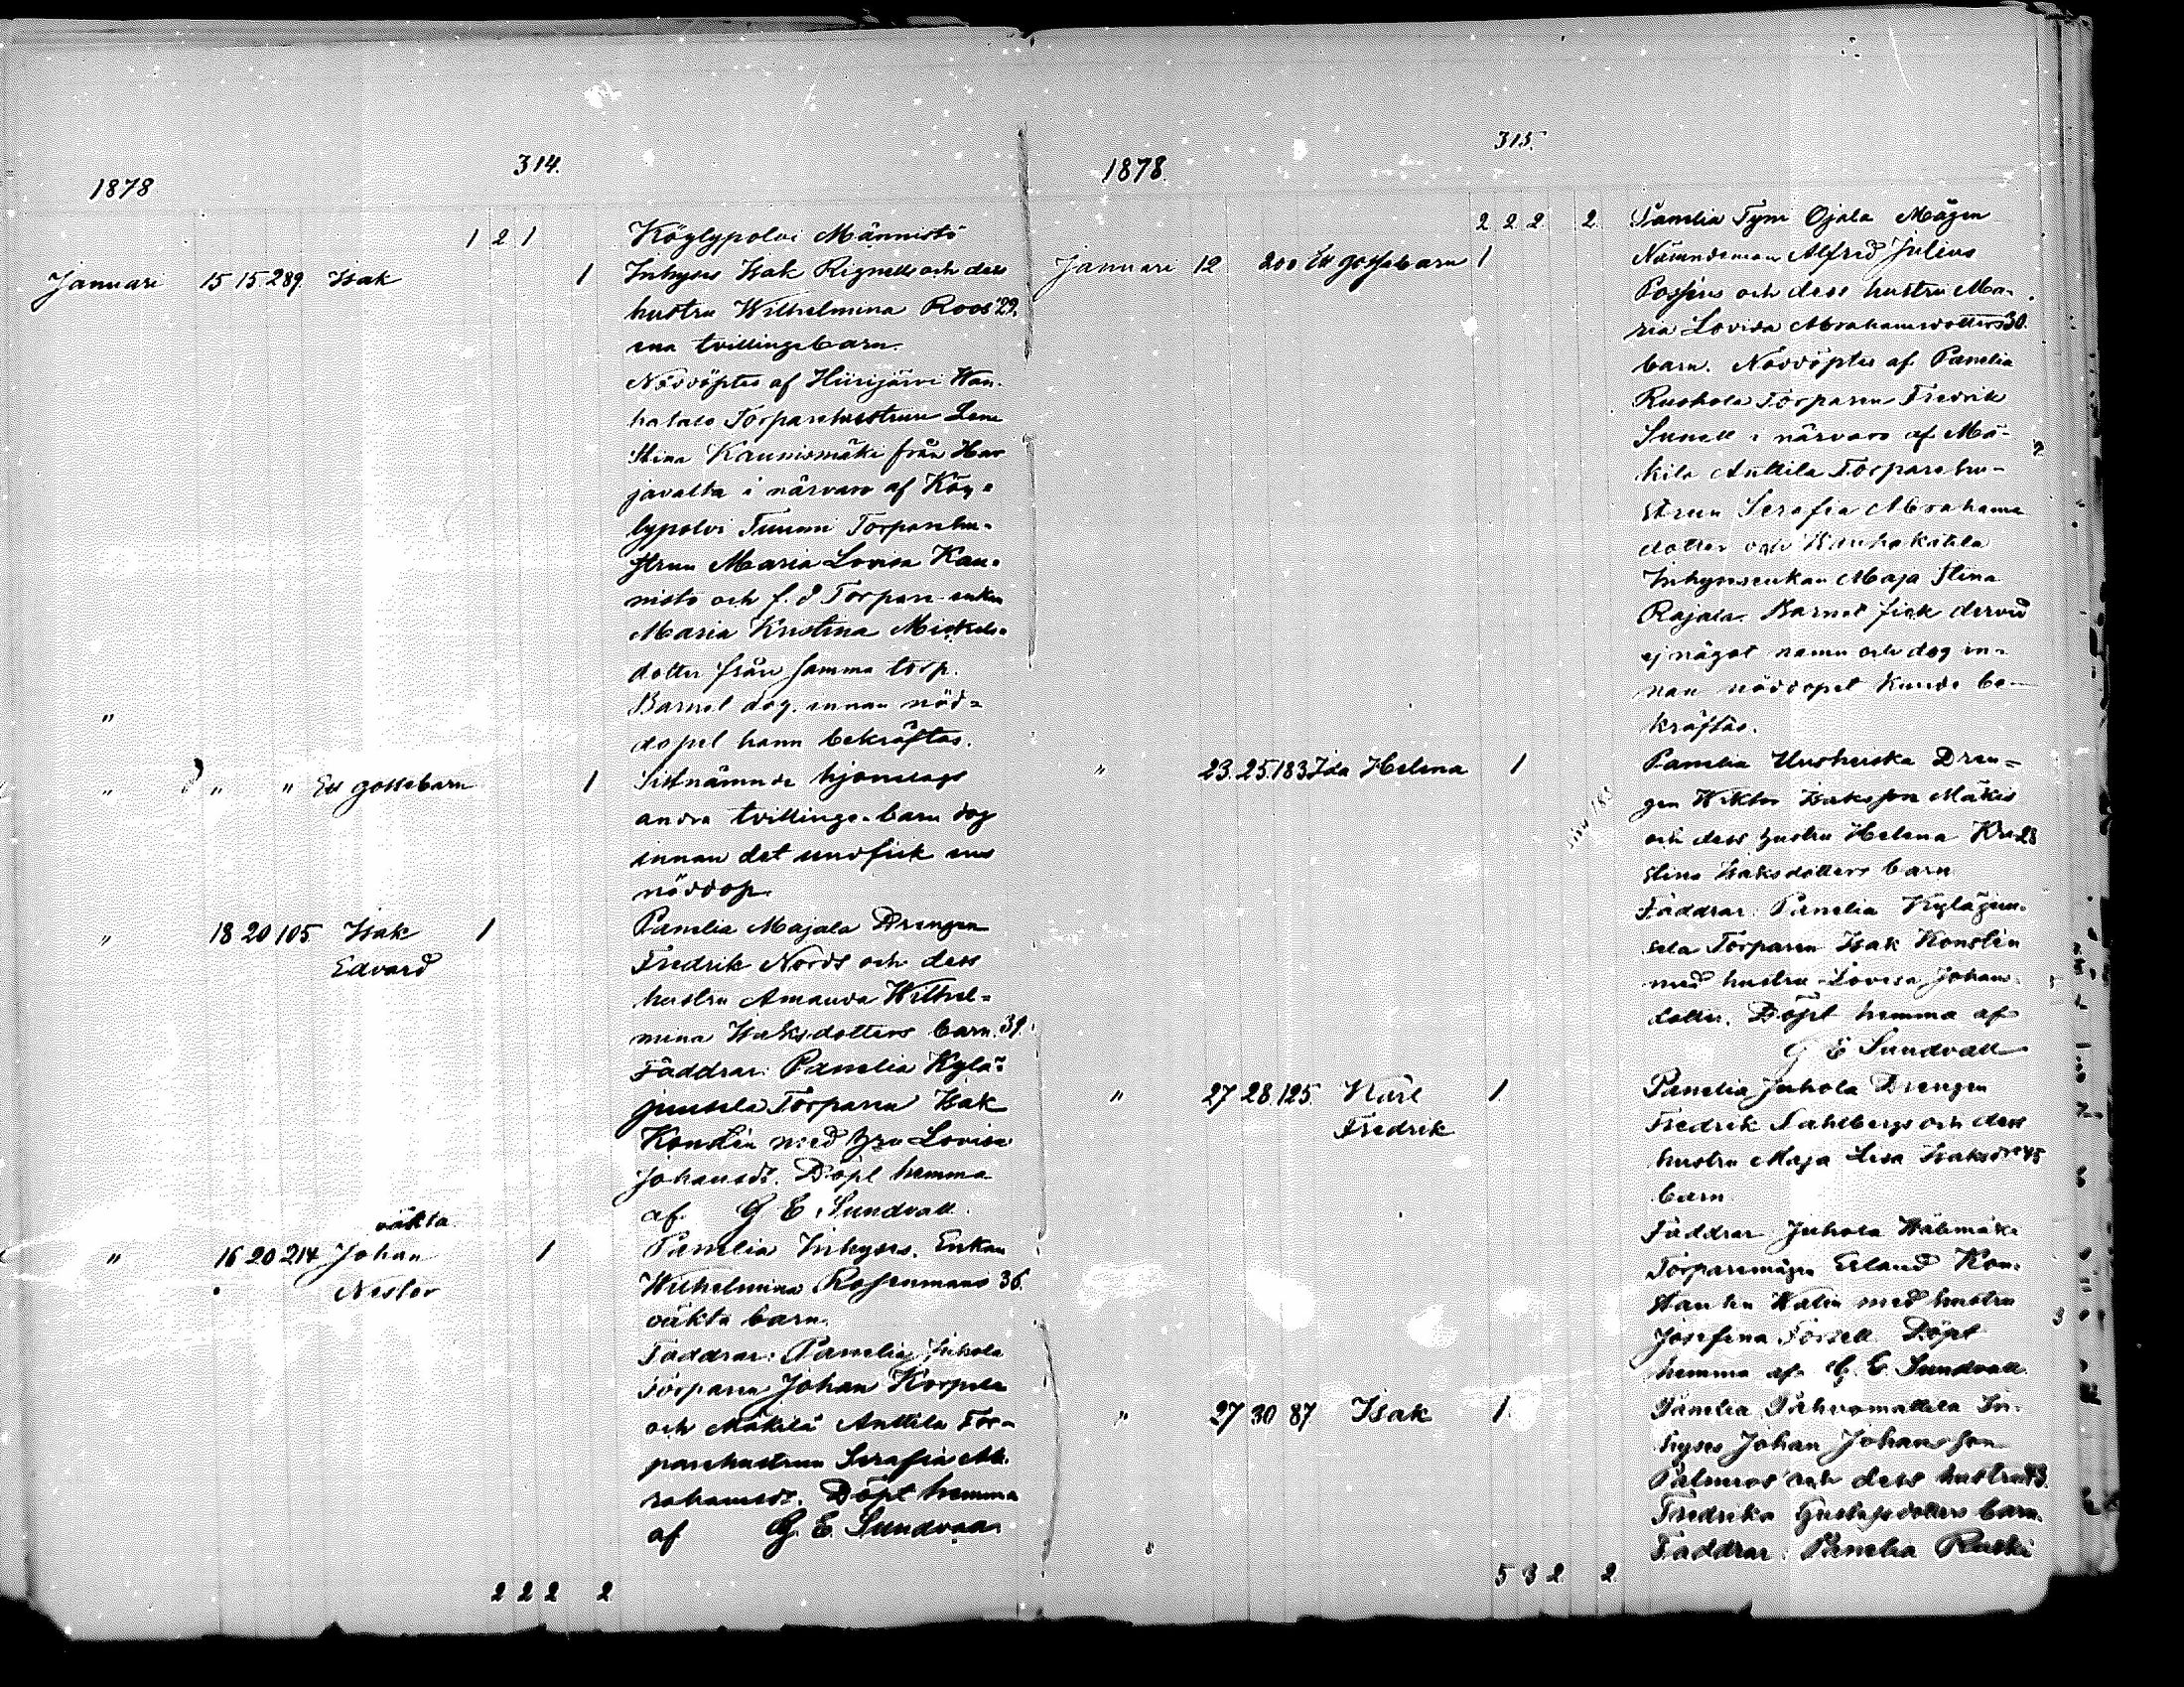 314.
1878
1 2 1 Köylypolvi Männistö
Januari 15 15 289 Isak 1 Inhyses Isak Rignells och dess
hustru Wilhelmina Roos' 29.
ena tvillingebarn.
Nöddöptes af Hiirijärvi Wan-
hatalo Torparehustrun Lena
Stina Kaunismäki från Har
javalta i närvaro af Köy-
lypolvi Tuomi Torparehu-
strun Maria Lovisa Kau-
nisto och f. d Torpare enkan
Maria Kristina Mickels-
dotter från samma torp.
" Barnet dog innan nöd-
dopet hann bekräftas.
" " " Ett gossebarn 1 Sistnämnde hjonelags
andra tvillinge-barn dog
innan det undfick ens
nöddop.
" 18 20 105 Isak 1 Panelia Majala Drengen
Edvard Fredrik Nords och dess
hustru Amanda Wilhel-
mina Isaksdotters barn. 39.
Faddrar: Panelia Kylä-
junsela Torparen Isak
Konstin med hru Lovisa
Johansdr. Döpt hemma
af G E Sundvall.
oäkta
" 16 20 214 Johan 1 Panelia Inhyses Enkan
Nestor Wilhelmina Rosenmans 36.
oäkta barn.
Faddrar: Panelia Juhola
Torparen Johan Korpela
och Mäkilä Anttila Tor-
parehustrun Serafia Ab-
rahamsdr. Döpt hemma
af G. E. Sundvall
2 2 2 2
315.
1878.
2 2 2 2 Panelia Tyni Ojala Mågen
Januari 12 200 Ett gossebarn 1 Nämndeman Alfred Julius
Possius och dess hustru Ma-
ria Lovisa Abrahamsdotters 30.
barn. Nöddöptes af Panelia
Ruohola Torparen Fredrik
Sunell i närvaro af Mä-
kilä Anttila Torparehu-
strun Serafia Abrahams
dotter och Kauhakatila
Inhysesenkan Maja Stina
Rajala. Barnet fick dervid
ej något namn och dog in-
nan nöddopet kunde be-
kräftas.
" 23. 25. 183 Ida Helena 1 Panelia Uushuiska Dren-
gen Wiktor Isaksson Mäkis
och dess hustru Helena Kri 28
stina Isaksdotters barn
Faddrar: Panelia Kyläjun-
sela Torparen Isak Konstin
med hustru Lovisa Johans-
dotter. Döpt hemma af
G E Sundvall
" 27 28. 125. Karl 1. Panelia Juhola Drengen
Fredrik Fredrik Sahlbergs och dess
hustru Maja Lisa Isaksdrs 45
barn
Faddrar Juhola Wälimäki
Torparemågen Erland Kon-
stantin Walin med hustru
Josefina Forsell. Döpt
hemma af G. E Sundvall
" 27 30 87 Isak 1. Panelia Pahvomattila In-
hyses Johan Johansson
Palmros och dess hustru 43.
Fredrika Gustafsdotters barn.
Faddrar: Panelia Ruski
5 3 2 2.